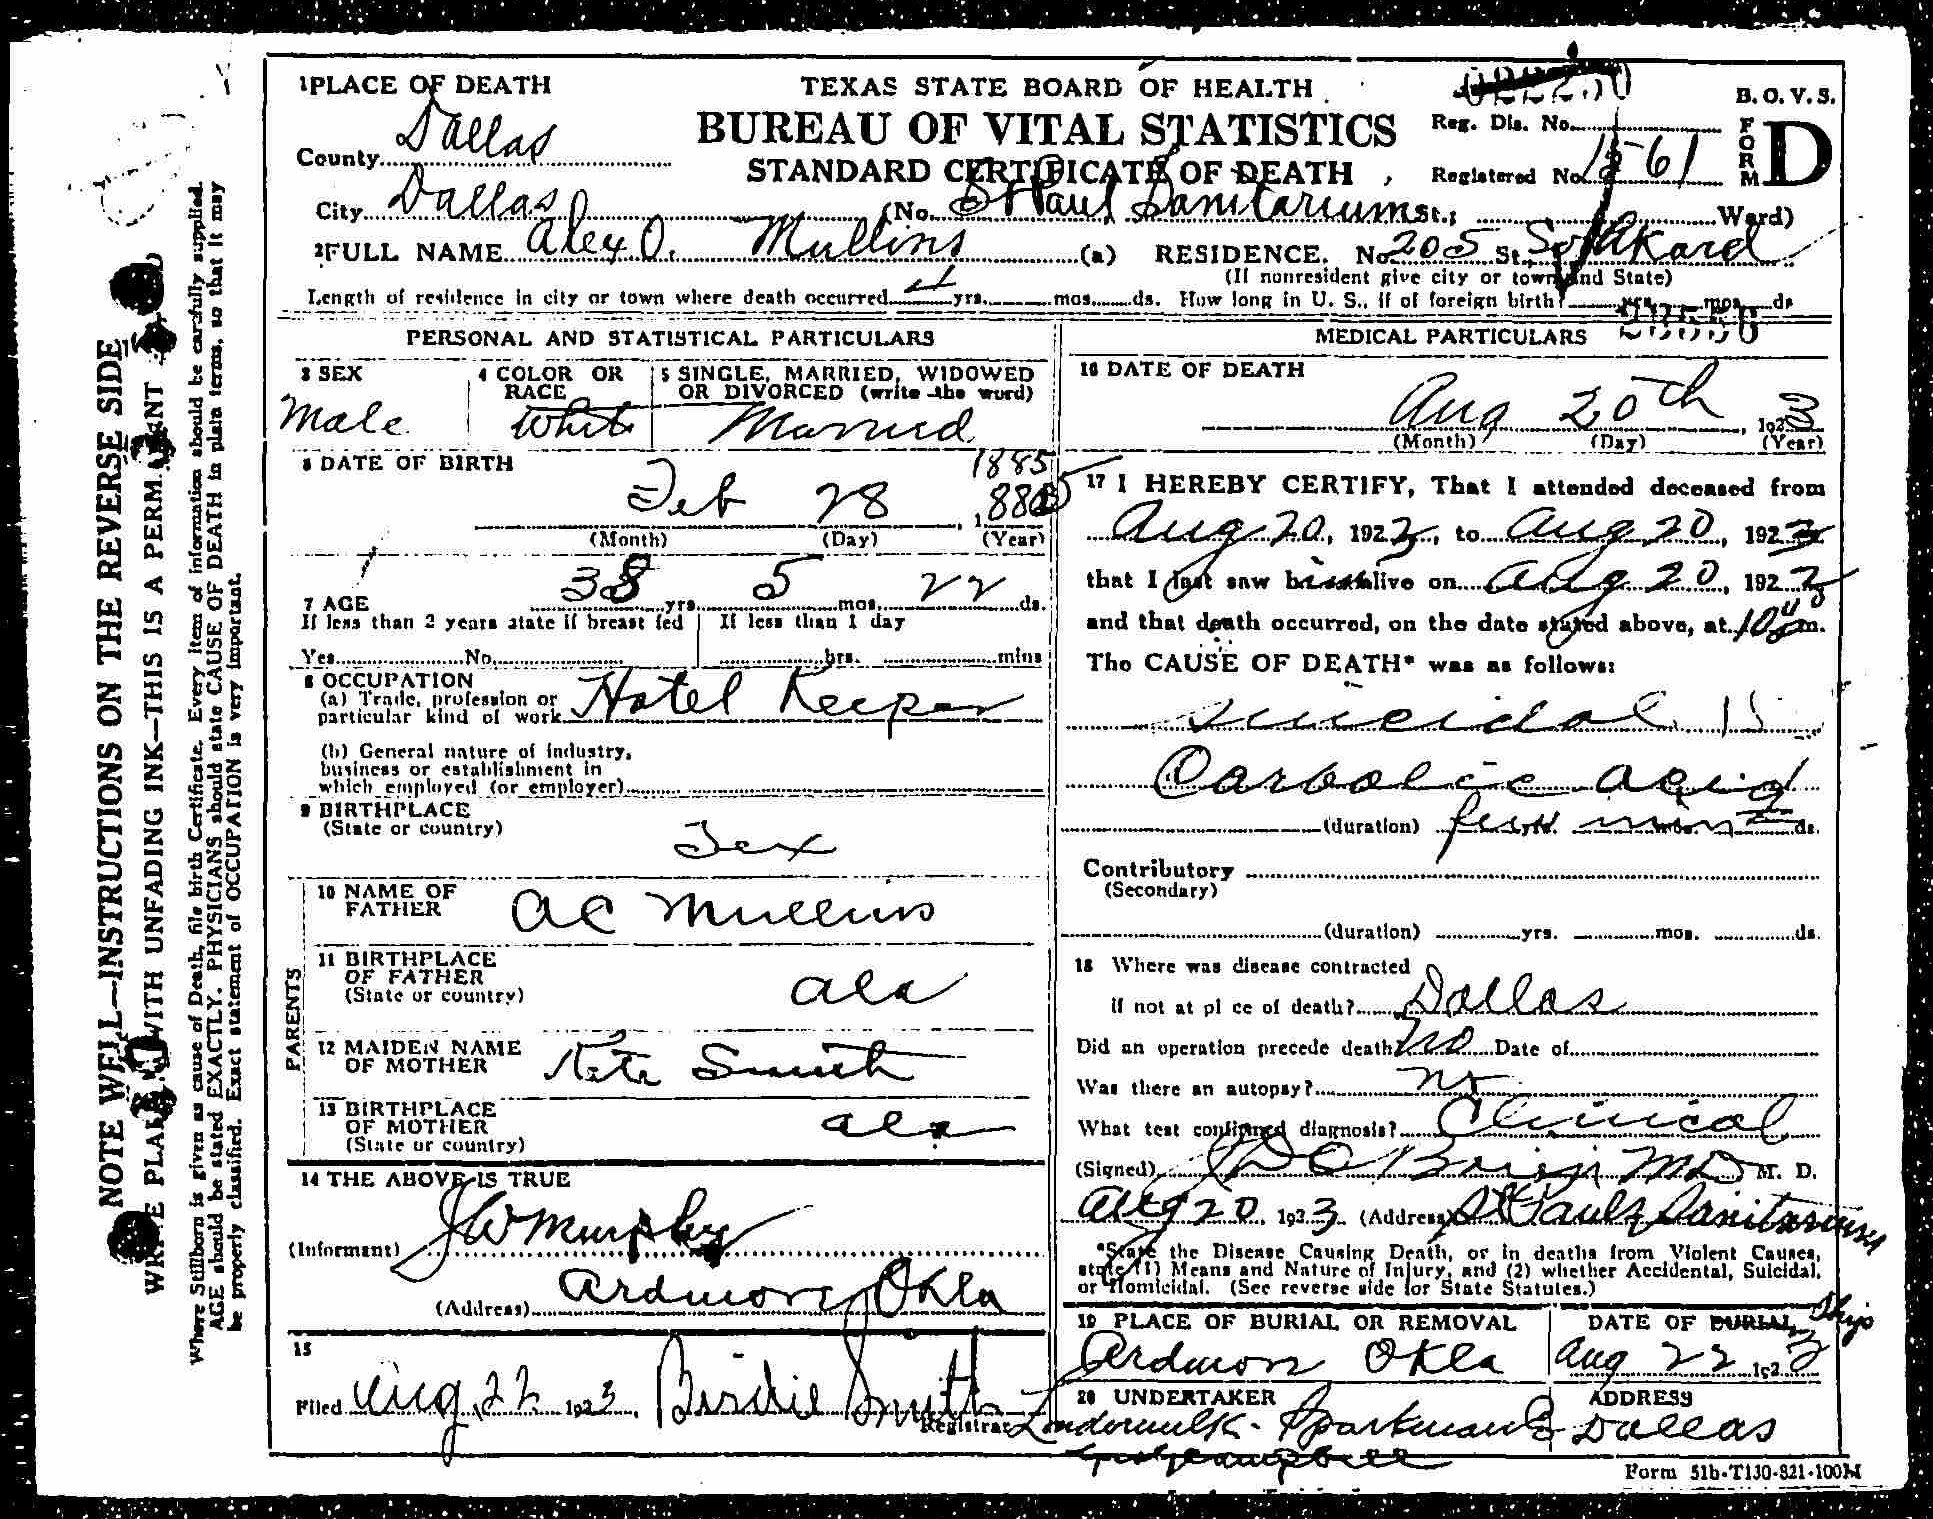 1 PLACE OF DEATH
TEXAS STATE BOARD OF HEALTH
B. O. V. S.
FORM D
BUREAU OF VITAL STATISTICS
STANDARD CERTIFICATE OF DEATH
Reg. Dis. No.
Registered No. 1561
County Dallas
City Dallas (No. St Paul Sanitarium St.; Ward)
2 FULL NAME Alex O. Mullins (a) RESIDENCE. No 205 St. So Akard
(If nonresident give city or town and State)
Length of residence in city or town where death occurred 4 yrs. mos. ds. How long in U. S., if of foreign birth? yrs. mos. ds
PERSONAL AND STATISTICAL PARTICULARS
3 SEX
Male
4 COLOR OR RACE
White
5 SINGLE, MARRIED, WIDOWED OR DIVORCED (write the word)
Married
6 DATE OF BIRTH
1885
Feb 28 1885
(Month) (Day) (Year)
7 AGE 38 yrs. 5 mos. 22 ds.
If less than 2 years state if breast fed
If less than 1 day
Yes No hrs. mins
8 OCCUPATION
(a) Trade, profession or particular kind of work Hotel Keeper
(b) General nature of industry,
business or establishment in
which employed (or employer)
9 BIRTHPLACE
(State or country)
Tex
PARENTS
10 NAME OF FATHER A C Mullins
11 BIRTHPLACE OF FATHER
(State or country) Ala
12 MAIDEN NAME OF MOTHER Kate Smith
13 BIRTHPLACE OF MOTHER
(State or country) Ala
14 THE ABOVE IS TRUE
(Informant) J W Murphy
(Address) Ardmore Okla
15
Filed Aug 22 1923, Birdie Smith
Registrar
MEDICAL PARTICULARS
16 DATE OF DEATH
Aug 20th, 1923
(Month) (Day) (Year)
17 I HEREBY CERTIFY, That I attended deceased from
Aug 20, 1923, to Aug 20, 1923
that I last saw him alive on Aug 20, 1923
and that death occurred, on the date stated above, at 10 m.
The CAUSE OF DEATH* was as follows:
suicidal
Carbolic acid
(duration) few yrs. mints mos. ds.
Contributory
(Secondary)
(duration) yrs. mos. ds.
18 Where was disease contracted
if not at pl ce of death? Dallas
Did an operation precede death? no Date of
Was there an autopsy? no
What test confirmed diagnosis? Clinical
(Signed) MD M. D.
Aug 20, 1923 (Address) St Pauls Sanitarium
*State the Disease Causing Death, or in deaths from Violent Causes,
state (1) Means and Nature of Injury, and (2) whether Accidental, Suicidal,
or Homicidal. (See reverse side for State Statutes.)
19 PLACE OF BURIAL OR REMOVAL
Ardmore Okla
DATE OF BURIAL Ship
Aug 22 1923
20 UNDERTAKER
Sparkman
ADDRESS
Dallas
Form 51b-T130-821-100M
NOTE WELL—INSTRUCTIONS ON THE REVERSE SIDE
WRITE PLAINLY WITH UNFADING INK—THIS IS A PERMANENT
Where Stillborn is given as cause of Death, file birth Certificate. Every item of information should be carefully supplied.
AGE should be stated EXACTLY. PHYSICIANS should state CAUSE OF DEATH in plain terms, so that it may
be properly classified. Exact statement of OCCUPATION is very important.